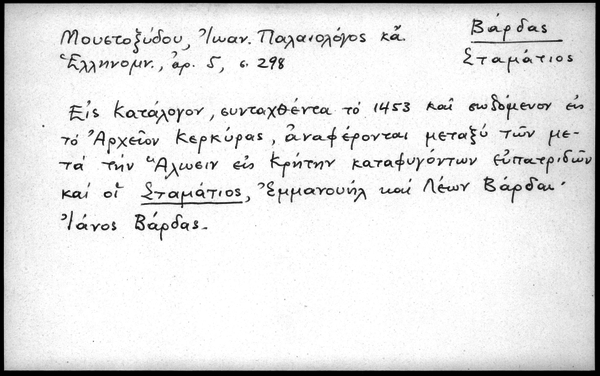 Βάρδας
Σταμάτιος
Μουστοξύδου, Ἰωαν. Παλαιολόγος κἄ.
Ἑλληνομν., ἀρ. 5, σ. 298
Εἰς κατάλογον, συνταχθέντα τό 1453 καί σωζόμενον εἰς
τό Ἀρχεῖον Κερκύρας, ἀναφέρονται μεταξύ τῶν με-
τά τήν Ἅλωσιν εἰς Κρήτην καταφυγόντων εὐπατριδῶν
καί οἱ Σταμάτιος, Ἐμμανουήλ καί Λέων Βάρδαι·
Ἰάνος Βάρδας.